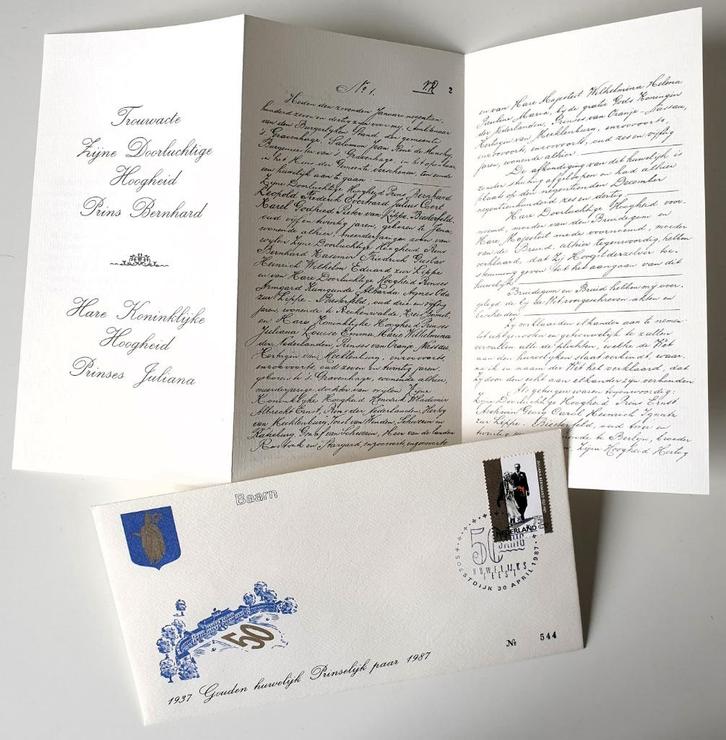 Trouwacte
Zijne Doorluchtige
Hoogheid
Prins Bernhard
Hare Koninklijke
Hoogheid
Prinses Juliana
No 1.
Heden den zevenden Januari negentien-
honderd zeven en dertig
van den Burgerlijken Stand der gemeente
's Gravenhage, Salomon Jean René de Monchy,
Burgemeester van 's Gravenhage
in het Huis der Gemeente verschenen, ten einde
een huwelijk aan te gaan
Zijne Doorluchtige Hoogheid Prins Bernhard
Leopold Frederik Everhard Julius Coert
Karel Godfried Pieter van Lippe Biesterfeld,
oud vijf en twintig jaren, geboren te Jena,
wonende alhier, meerderjarige zoon van
wijlen Zijne Doorluchtige Hoogheid Prins
Bernhard Kasimir Friedrich Gustav
Heinrich Wilhelm Eduard zur Lippe
en van Hare Doorluchtige Hoogheid Prinses
Armgard Kunigunde Alharda Agnes Oda
zur Lippe-Biesterfeld, oud drie en vijftig
jaren, wonende te Reckenwalde,
en Hare Koninklijke Hoogheid Prinses
Juliana Louise Emma Marie Wilhelmina
der Nederlanden, Prinses van Oranje-Nassau,
Hertogin van Mecklenburg, enzoovoorts,
enzoovoorts, oud zeven en twintig jaren,
geboren te 's Gravenhage, wonende alhier,
meerderjarige dochter van wijlen Zijne
Koninklijke Hoogheid Hendrik Wladimir
Albrecht Ernst, Prins der Nederlanden, Hertog
van Mecklenburg, Vorst van Wenden, Schwerin en
Ratzeburg, Graaf van Schwerin, Heer van de landen
Rostock en Stargard, enzoovoorts, enzoovoorts
en van Hare Majesteit Wilhelmina Helena
Pauline Maria, bij de gratie Gods, Koningin
der Nederlanden, Prinses van Oranje-Nassau,
Hertogin van Mecklenburg, enzoovoorts,
enzoovoorts, enzoovoorts, oud zes en vijftig
jaren, wonende alhier.
De afkondiging van dit huwelijk is
zonder stuiting afgeloopen en had alhier
plaats op den negentienden December
negentienhonderd zes en dertig.
Hare Doorluchtige Hoogheid voor-
noemd, moeder van den Bruidegom en
Hare Majesteit mede voornoemd, moeder
van de Bruid, alhier tegenwoordig, hebben
verklaard, dat Zij Hoogstderzelver toe-
stemming geven tot het aangaan van dit
huwelijk.
Bruidegom en Bruid hebben mij over-
gelegd de bij de Wet voorgeschreven akten en
bescheiden.
Zij verklaarden elkander aan te nemen
tot echtgenooten en getrouwelijk te zullen
vervullen alle de plichten, welke de Wet
aan den huwelijken staat verbindt, waar-
na ik in naam der Wet heb verklaard, dat
zij door den echt aan elkander zijn verbonden
als getuigen waren tegenwoordig:
Zijne Doorluchtige Hoogheid Prins Ernst
Aschwin Georg Carol Heinrich Ignatz
zur Lippe-Biesterfeld, oud twee en
twintig jaren, wonende te Berlijn, broeder
Zijne Hoogheid Hertog
Baarn
NEDERLAND
50
JAAR
HUWELIJKS
FEEST
SOESTDIJK 30 APRIL 1987
50
1937 Gouden huwelijk Prinselijk paar 1987
No 544